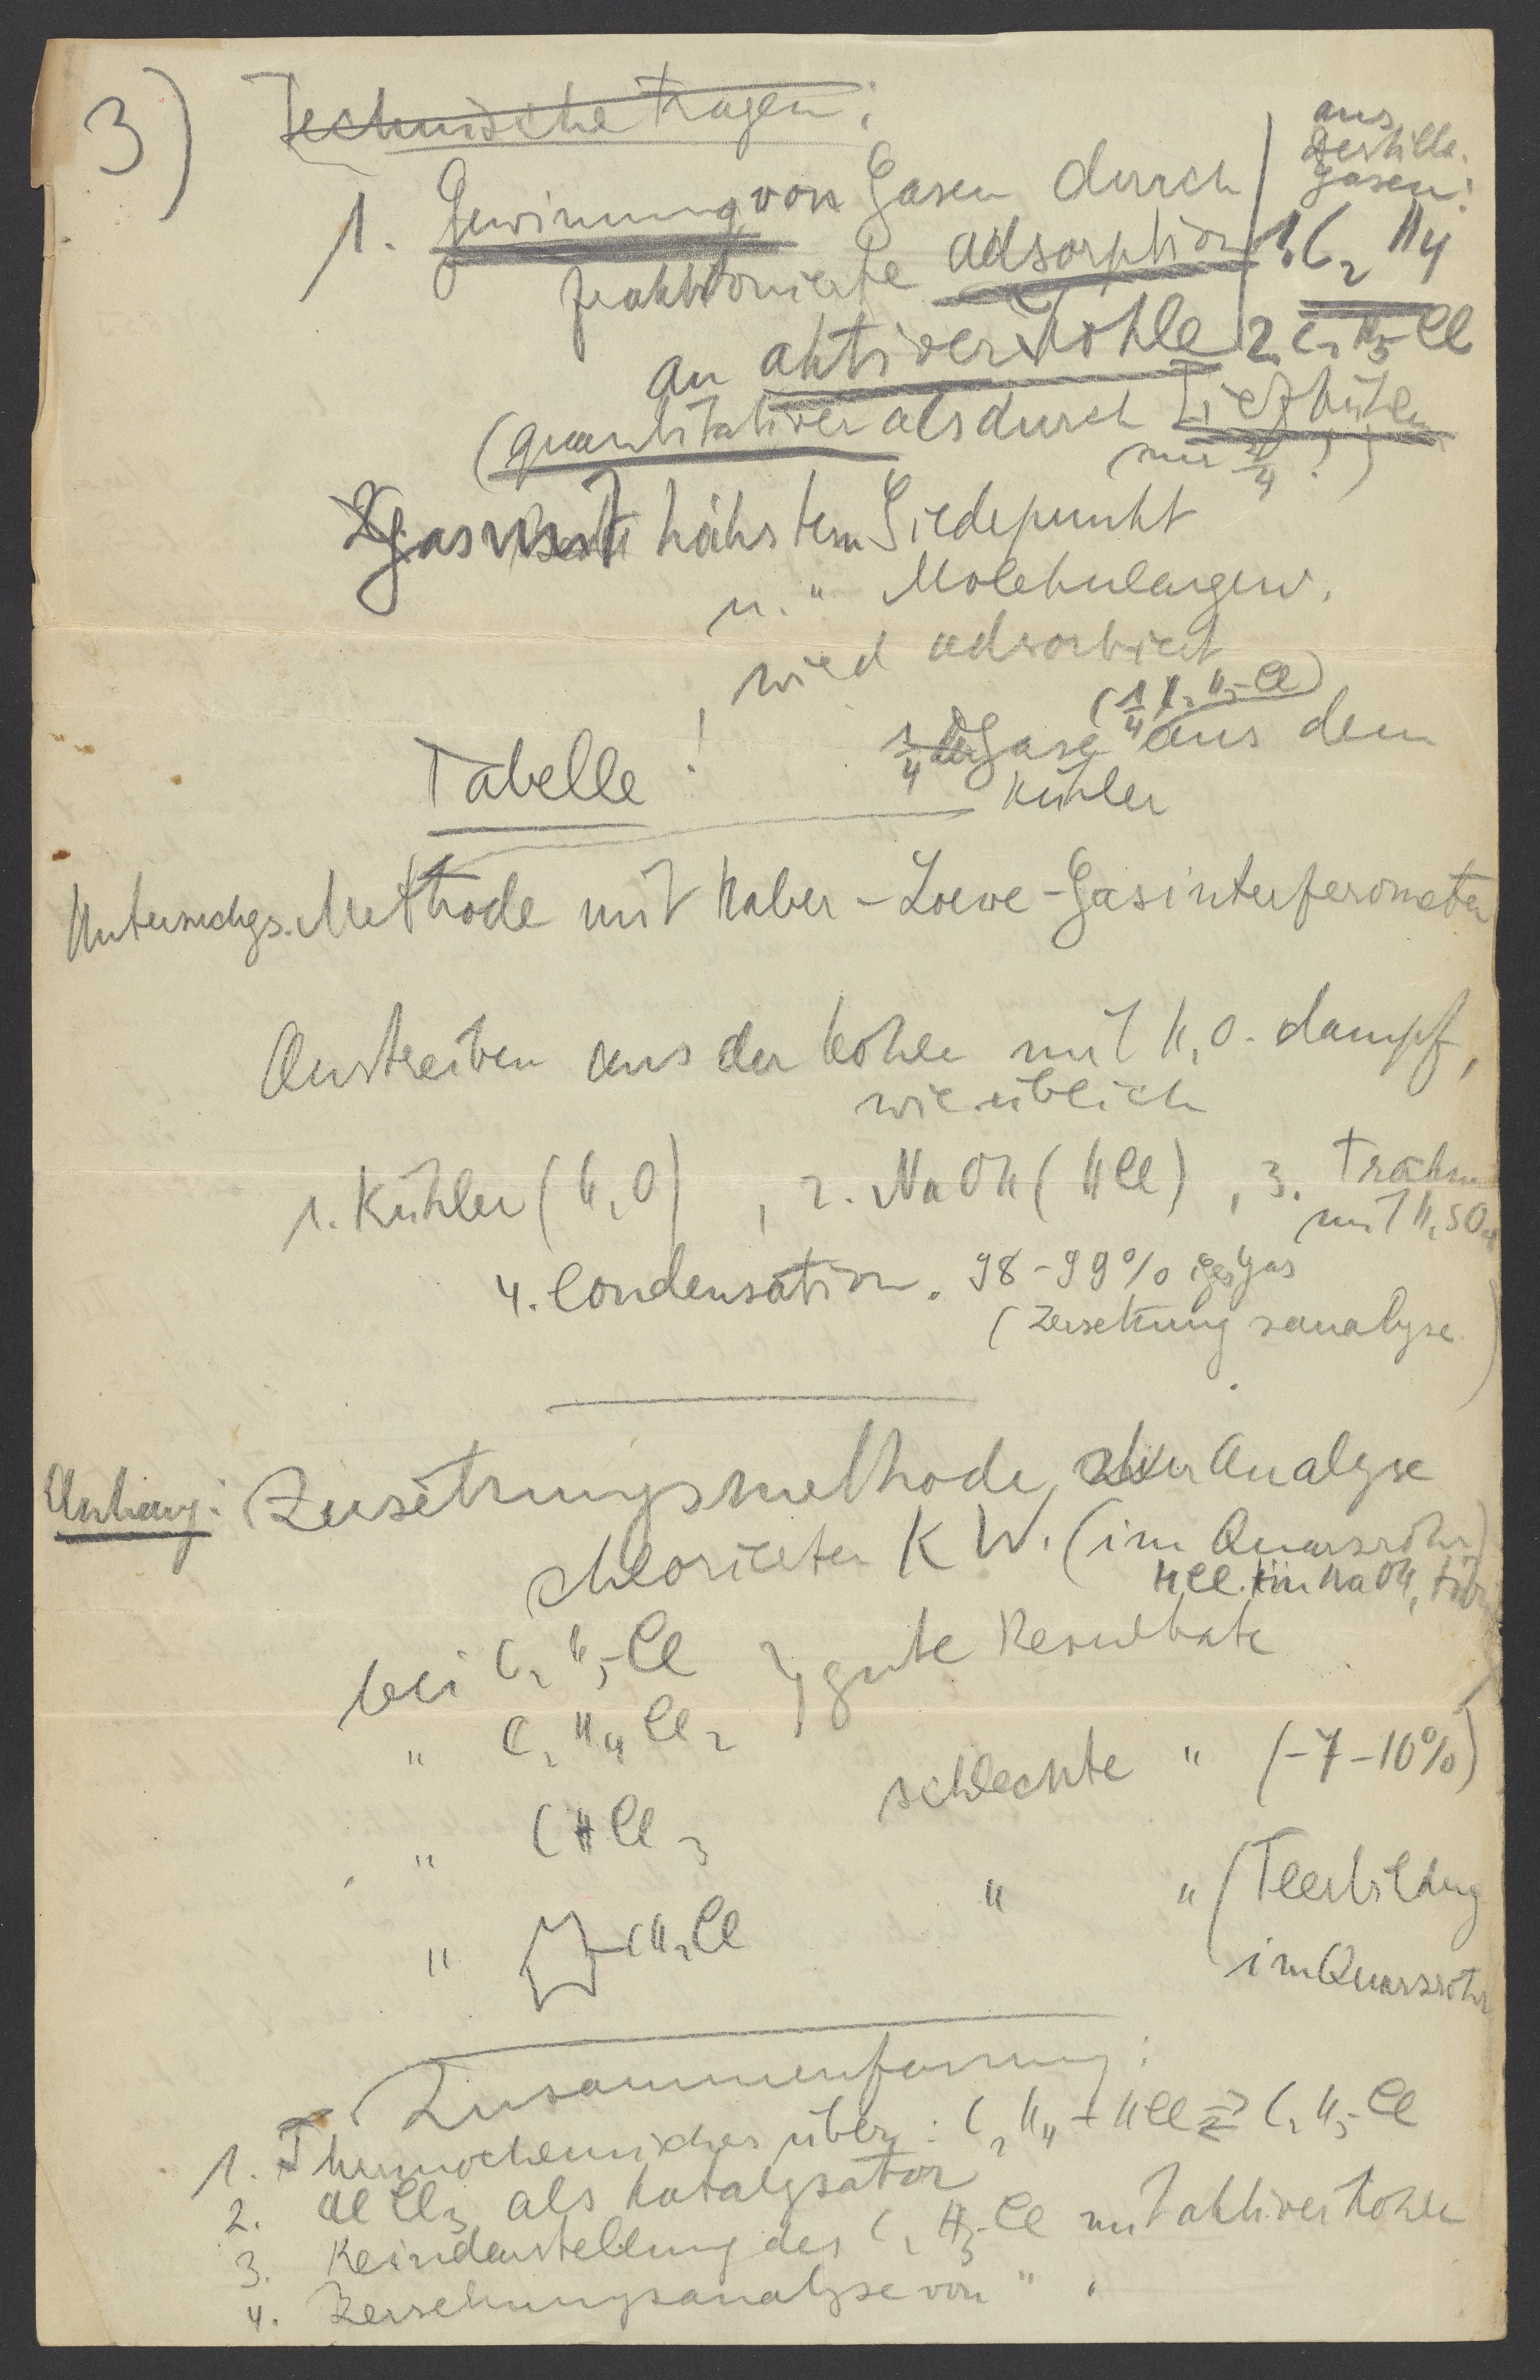 3) Technische Fragen:
1. Gewinnung von Gasen durch
fraktionierte Adsorption
an aktiver Kohle
aus
Destill.
gasen:
1. C2H4
2. C2H5Cl
(quantitativer als durch Tiefkühlen
nur 3/4!)
Gas mit höchstem Siedepunkt
u. " Molekulargew.
wird adsorbiert
(1/4 C2H5Cl)
Tabelle!
1/4 der Gase aus dem
Kühler
Untersuchgs. Methode mit Haber-Loewe-Gasinterferometer
Austreiben aus der Kohle mit H2O-dampf,
wie üblich
1. Kühler (H2O), 2. NaOH (HCl), 3. Trockn
mit H2SO4
4. Condensation. 98-99%iges Gas
(Zersetzungsanalyse)
Anhang: Zersetzungsmethode zur Analyse
chlorierter KW. (im Quarzrohr)
HCl in NaOH,
bei C2H5Cl } gute Resultate
" C2H4Cl2
schlechte " (-7-10%)
" CHCl3
" " (Teerbildung
" CH2Cl
im Quarzrohr
Zusammenfassung:
1. Thermochemisches über: C2H4 + HCl ⇌ C2H5Cl
2. AlCl3 als Katalysator
3. Reindarstellung des C2H5Cl mit aktiver Kohle
4. Zersetzungsanalyse von " "